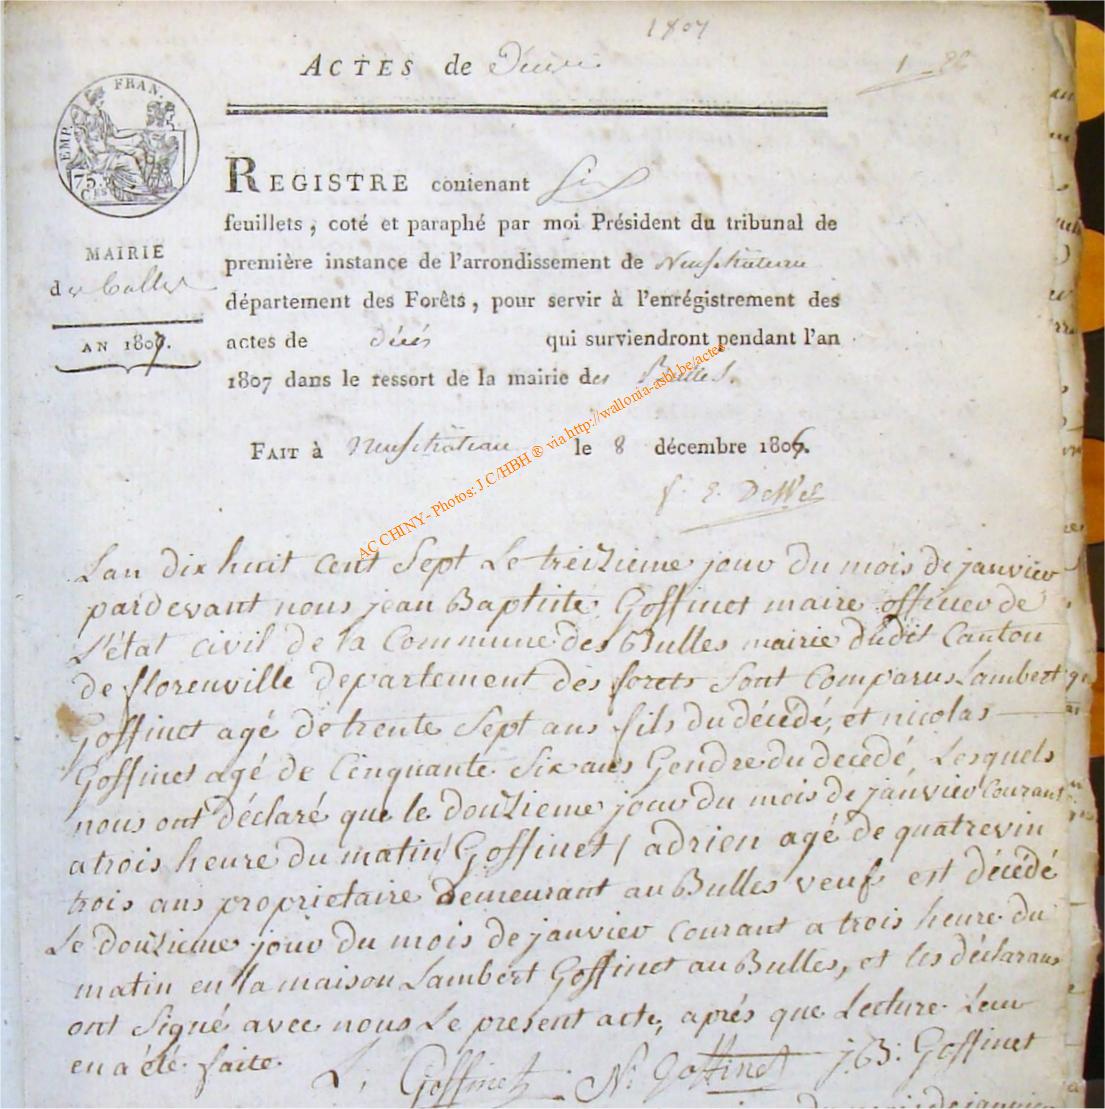 1807
ACTES de Décès
1
EMP. FRAN.
75.
C.es
REGISTRE contenant Six
feuillets, coté et paraphé par moi Président du tribunal de
MAIRIE
première instance de l'arrondissement de Neufchâteau
des Bulles
département des Forêts, pour servir à l'enrégistrement des
AN 1807.
actes de décès qui surviendront pendant l'an
1807 dans le ressort de la mairie des Bulles.
FAIT à Neufchâteau le 8 décembre 1806.
AC CHINY - Photos: J.C/HBH ® via http://wallonia-asbl.be/actes
Lan dix huit cent Sept Le treizieme jour du mois de janvier
pardevant nous jean Baptiste Goffinet maire officier de
L'état civil de la Commune des Bulles mairie dudit Canton
de florenville departement des forets Sont Comparus Lambert
Goffinet agé de trente Sept ans fils du décédé, et nicolas
Goffinet agé de Cinquante Six ans Gendre du decedé Lesquels
nous ont déclaré que le douzieme jour du mois de janvier Courant
a trois heure du matin Goffinet / adrien agé de quatrevin
trois ans proprietaire demeurant au Bulles veuf est décédé
Le douzieme jour du mois de janvier courant a trois heure du
matin en la maison Lambert Goffinet au Bulles, et les déclarans
ont Signé avec nous Le present acte, aprés que Lecture Leur
en a été faite.
L. Goffinet N: Goffinet J.B: Goffinet